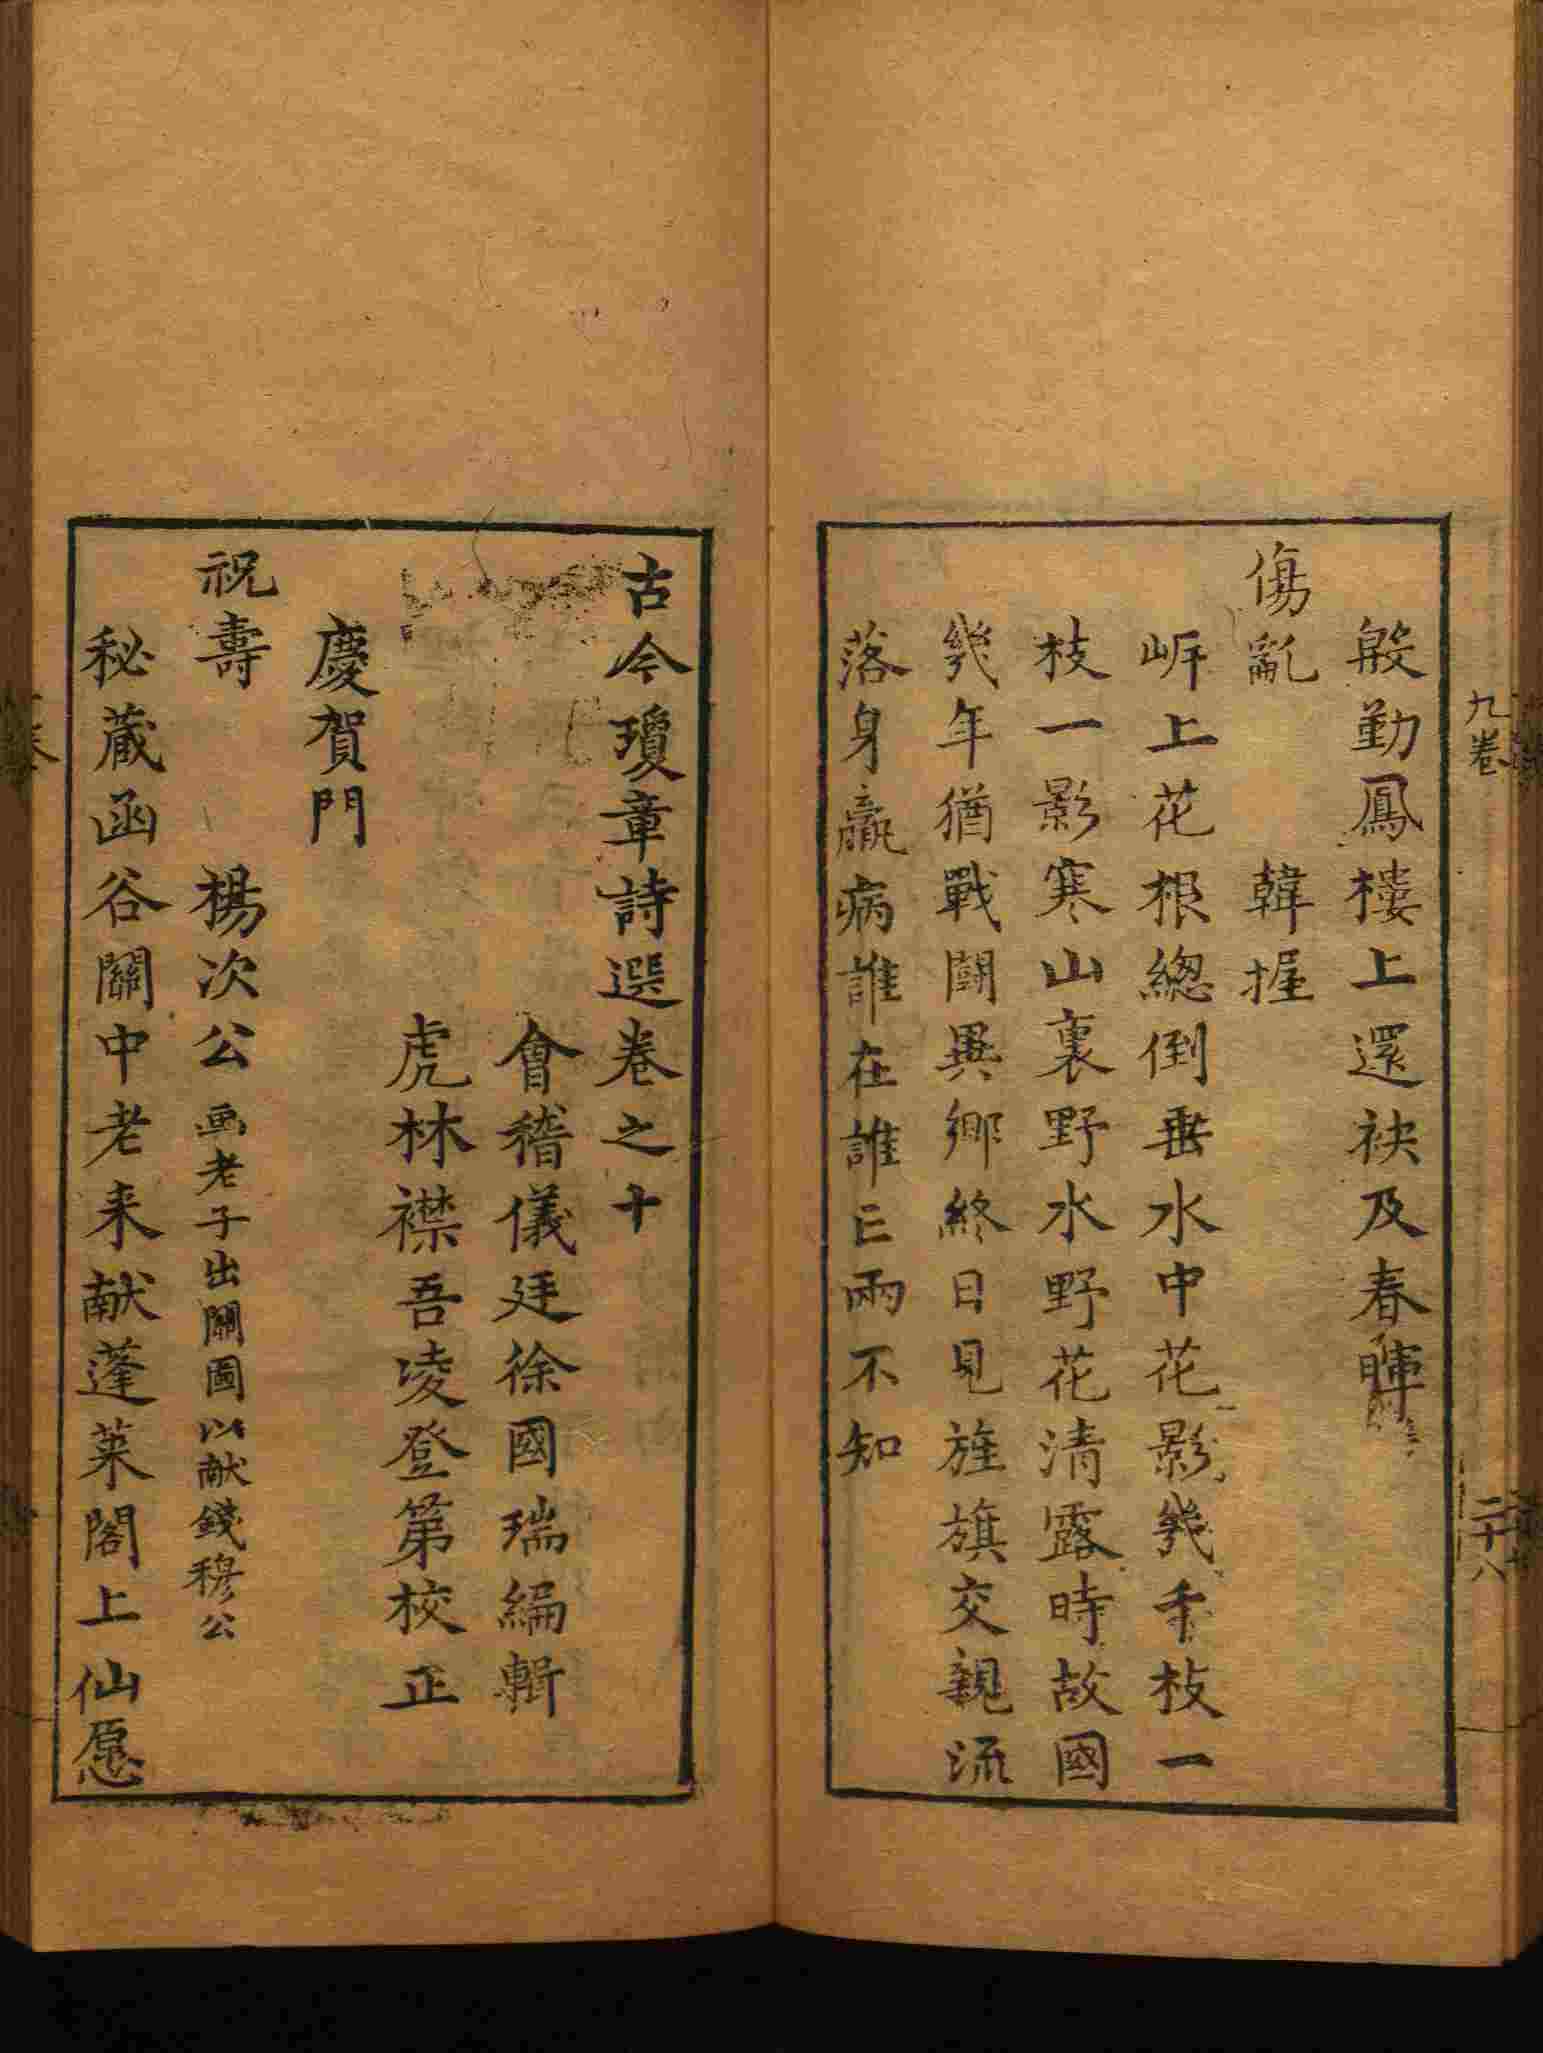 九卷
二十八
殷勤鳳樓上還袂及春暉
傷亂 韓握
岍上花根總倒垂水中花影幾千枝一
枝一影寒山裏野水野花清露時故國
幾年猶戰鬪異鄉終日見旌旗交親流
落身羸病誰在誰亡兩不知
古今瓊章詩選卷之十
會稽儀廷徐國瑞編輯
虎林襟吾凌登第校正
慶賀門
祝壽 楊次公 画老子出關圖以献錢穆公
秘蔵函谷關中老来献蓬莱閣上仙愿